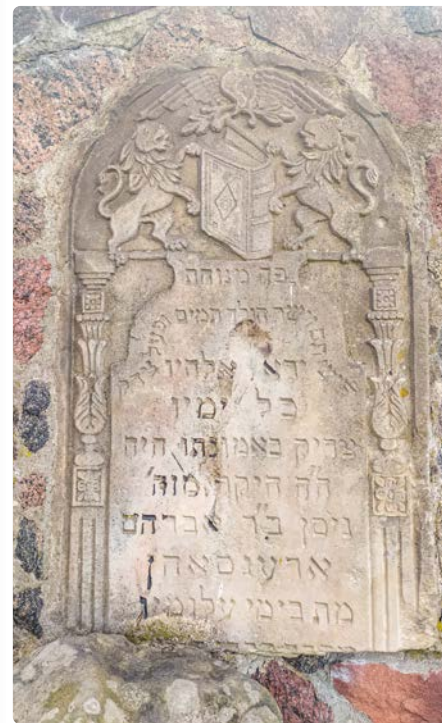 פה מנוחת
ישר הולך תמים ופעל צדק
איש ירא אלהיו
כל ימיו
צדיק באמונתו היה
ה"ה היקר מוה'
ניסן ב"ר אברהם
ארענסאהן
מת בימי עלומיו